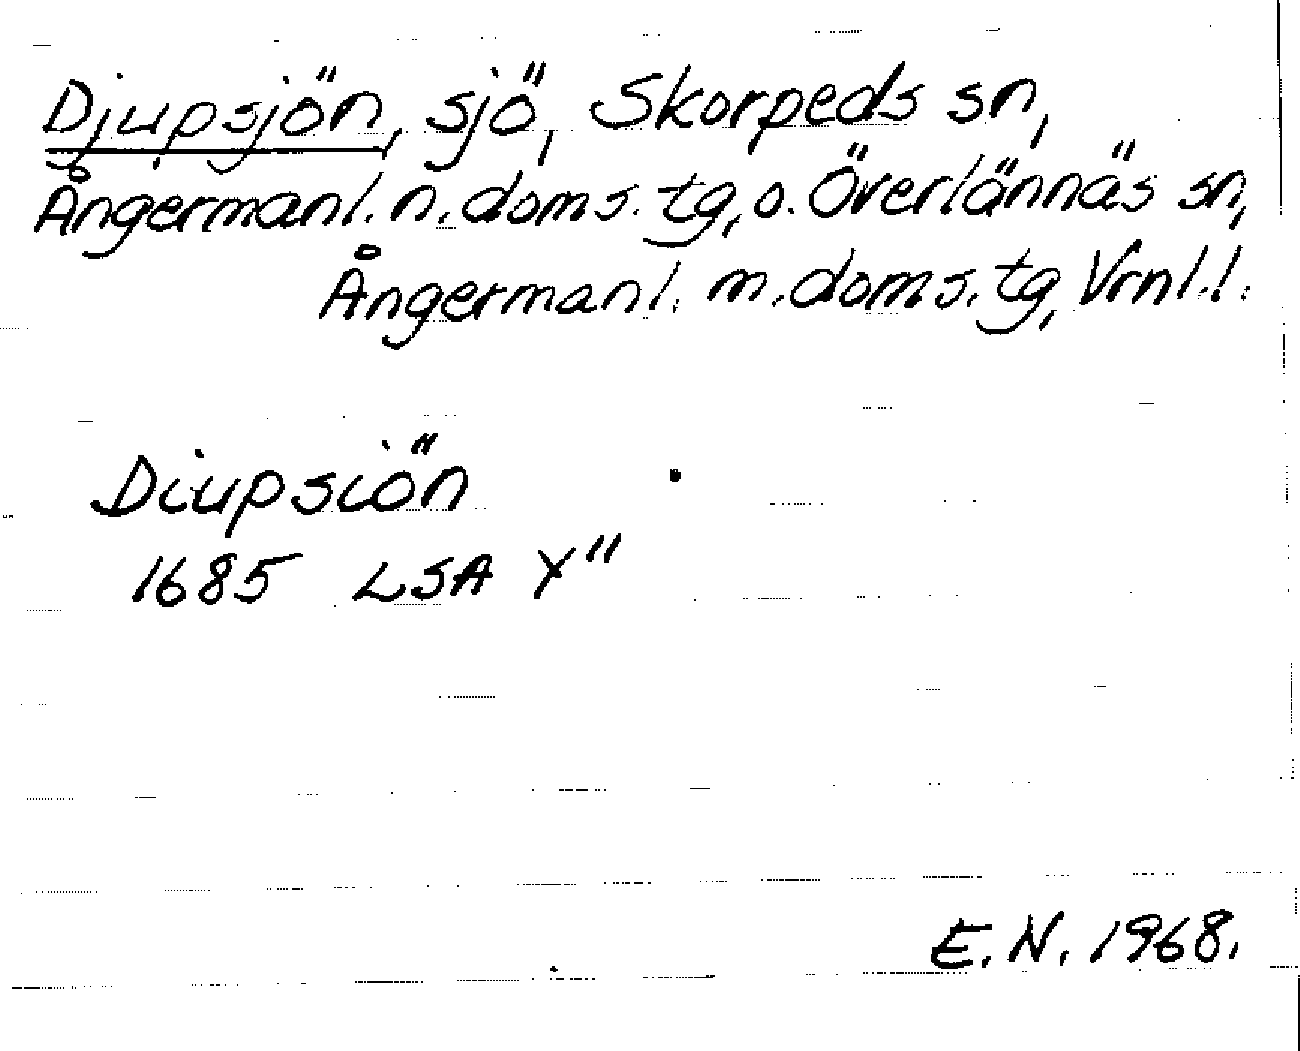 Djupsjön, sjö, Skorpeds sn,
Ångermanl. n. doms. tg, o. Överlännäs sn,
Ångermanl. m. doms. tg, Vrnl. l.
Diupsiön
1685 LSA Y"
E. N. 1968.